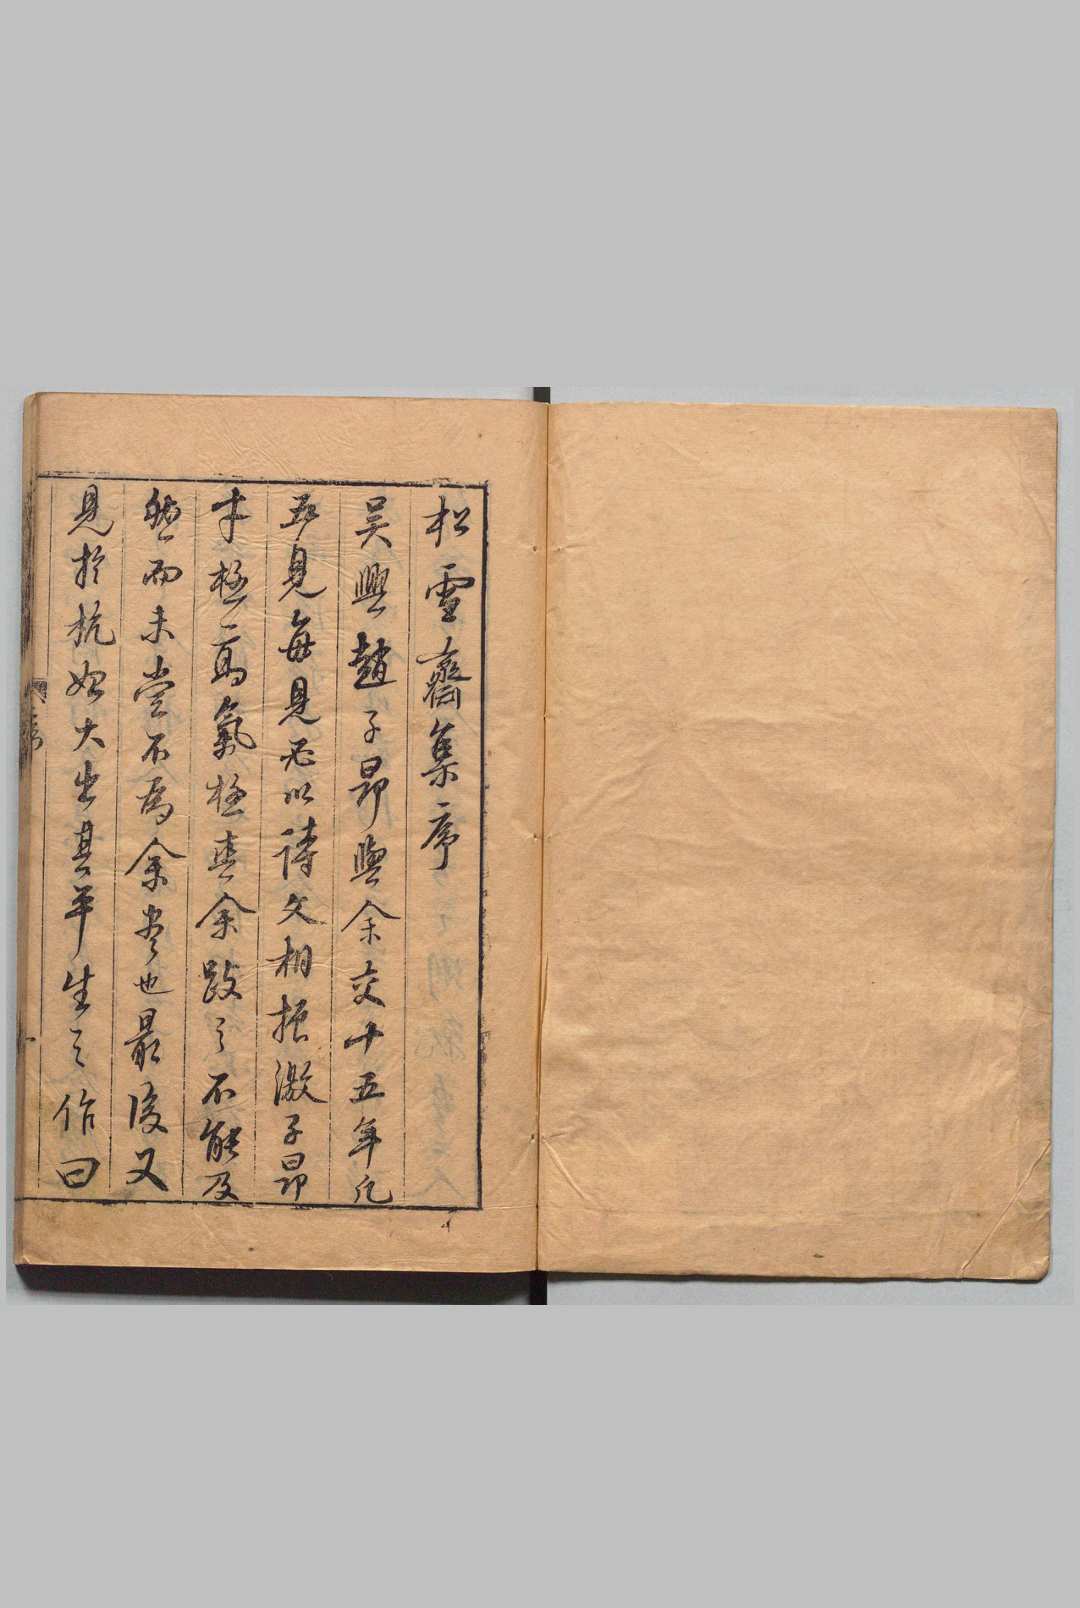 松雪齋集序
吴興趙子昂與余交十五年凡
五見每見必以詩文相振激子昂
才極高氣極爽余跂之不能及
然而未嘗不爲余盡也最後又
見於杭始大出其平生之作曰